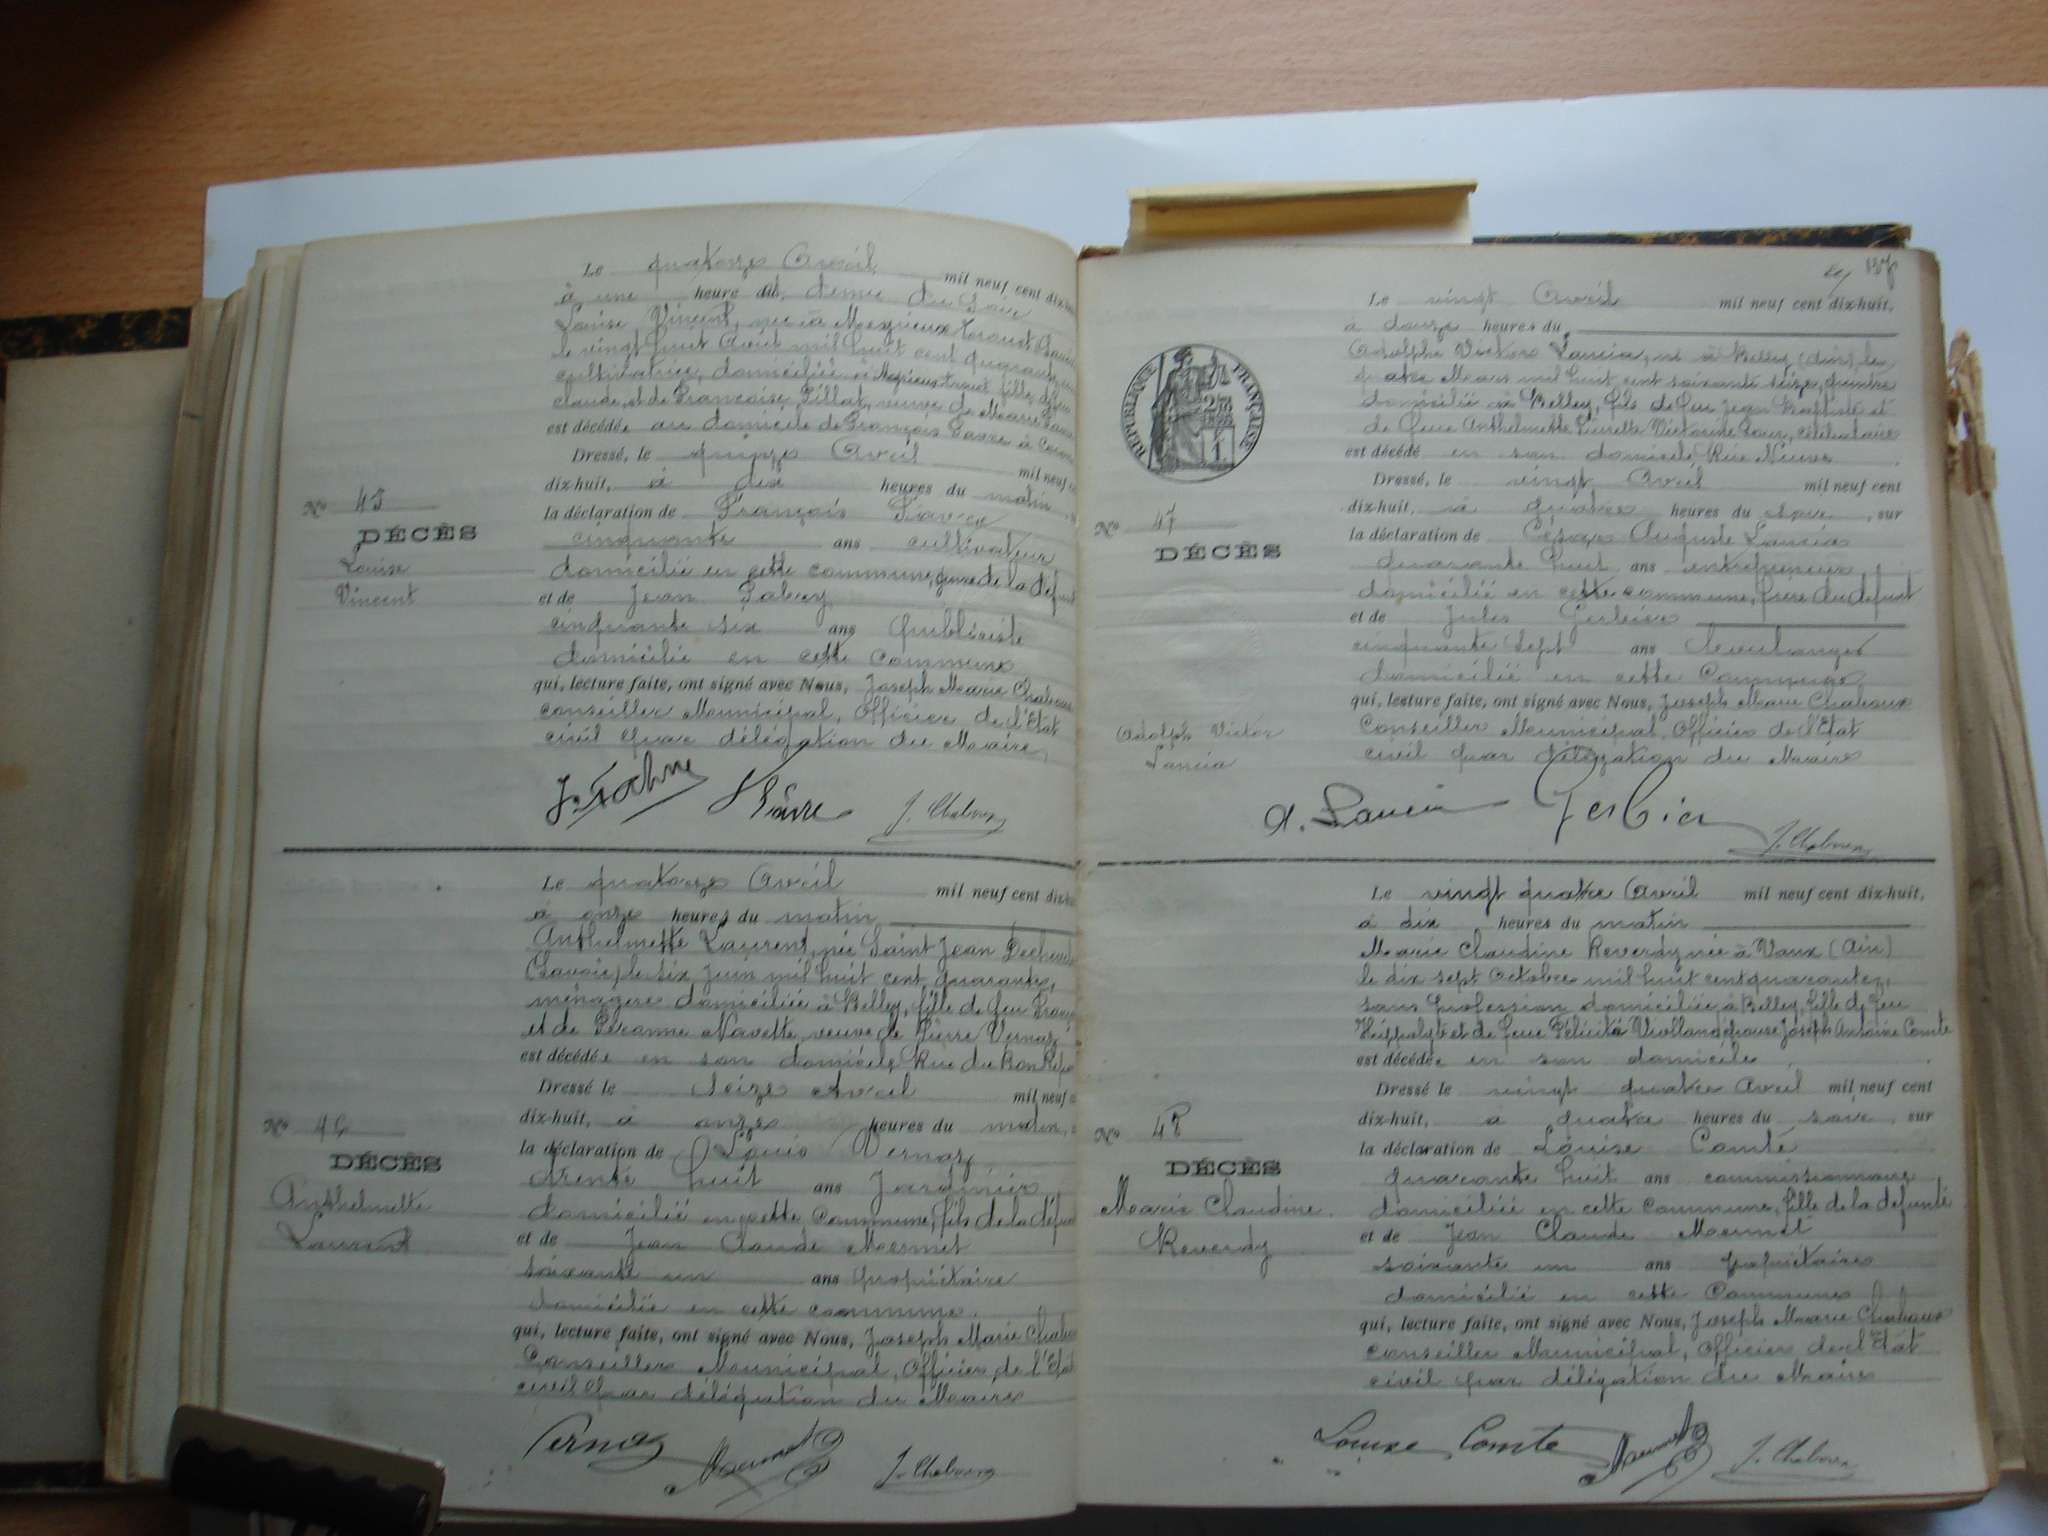 Le quatorze Avril mil neuf cent dix
à une heure du demie du Soir
Louise Vincent, née à
le vingt huit Avril mil huit cent quarante
cultivatrice, domiciliée à fille de feu
claude et de Françoise Pillat, veuve de Marie
est décédée au domicile de François Favre à
Dressé, le quinze Avril mil neuf
dix-huit, à dix heures du matin
la déclaration de François Favre
cinquante ans cultivateur
domicilié en cette commune, de la défunte
et de Jean
cinquante six ans Publiciste
domicilié en cette commune
qui, lecture faite, ont signé avec Nous, Joseph Marie
conseiller Municipal, Officier de l'Etat
civil par délégation du Maire,
Nº 45
DÉCÈS
Louise
Vincent
Favre
Le quatorze Avril mil neuf cent dix
à onze heures du matin
Anthelmette Laurent, née Saint Jean
(Savoie) le six juin mil huit cent quarante,
ménagère domiciliée à Belley, fille de feu
et de Péronne Navette, veuve de Pierre Vernaz
est décédée en son domicile Rue du Bon Repos
Dressé le seize Avril mil neuf
dix-huit, à onze heures du matin,
la déclaration de Louis Vernaz
trente huit ans Jardinier
domicilié en cette Commune, fils de la défunte
et de Jean Claude Mermet
soixante un ans propriétaire
domicilié en cette commune.
qui, lecture faite, ont signé avec Nous, Joseph Marie
Conseiller Municipal, Officier de l'Etat
civil par délégation du Maire
Nº 46
DÉCÈS
Anthelmette
Laurent
Vernaz
137
RÉPUBLIQUE FRANÇAISE
Le vingt Avril mil neuf cent dix-huit,
à douze heures du
Adolphe Victor Lancia, né à Belley (Ain) le
quatre Mars mil huit cent soixante seize, peintre
domicilié à Belley, fils de feu Jean Baptiste et
de feue Anthelmette Pierrette Victorine célibataire
est décédé en son domicile Rue Neuve
Dressé, le vingt Avril mil neuf cent
dix-huit, à quatre heures du soir, sur
la déclaration de César Auguste Lancia
quarante huit ans entrepreneur
domicilié en cette commune, frère du défunt
et de Jules Gerbier
cinquante sept ans boulanger
domicilié en cette Commune
qui, lecture faite, ont signé avec Nous, Joseph Marie Chaboux
Conseiller Municipal, Officier de l'Etat
civil par délégation du Maire
Nº 47
DÉCÈS
Adolph Victor
Lancia
A. Lancia Gerbier
Le vingt quatre Avril mil neuf cent dix-huit,
à dix heures du matin
Marie Claudine Reverdy née à Vaux (Ain)
le dix sept Octobre mil huit cent
sans profession domiciliée à Belley, fille de feu
Hippolyte et de feue Félicité épouse Joseph Antoine Comte
est décédée en son domicile
Dressé le vingt quatre Avril mil neuf cent
dix-huit, à quatre heures du soir, sur
la déclaration de Louise Comte
quarante huit ans commissionnaire
domiciliée en cette commune, fille de la défunte
et de Jean Claude Mermet
soixante un ans propriétaire
domicilié en cette Commune
qui, lecture faite, ont signé avec Nous, Joseph Marie Chaboux
conseiller Municipal, Officier de l'Etat
civil par délégation du Maire
Nº 48
DÉCÈS
Marie Claudine
Reverdy
Louise Comte Mermet